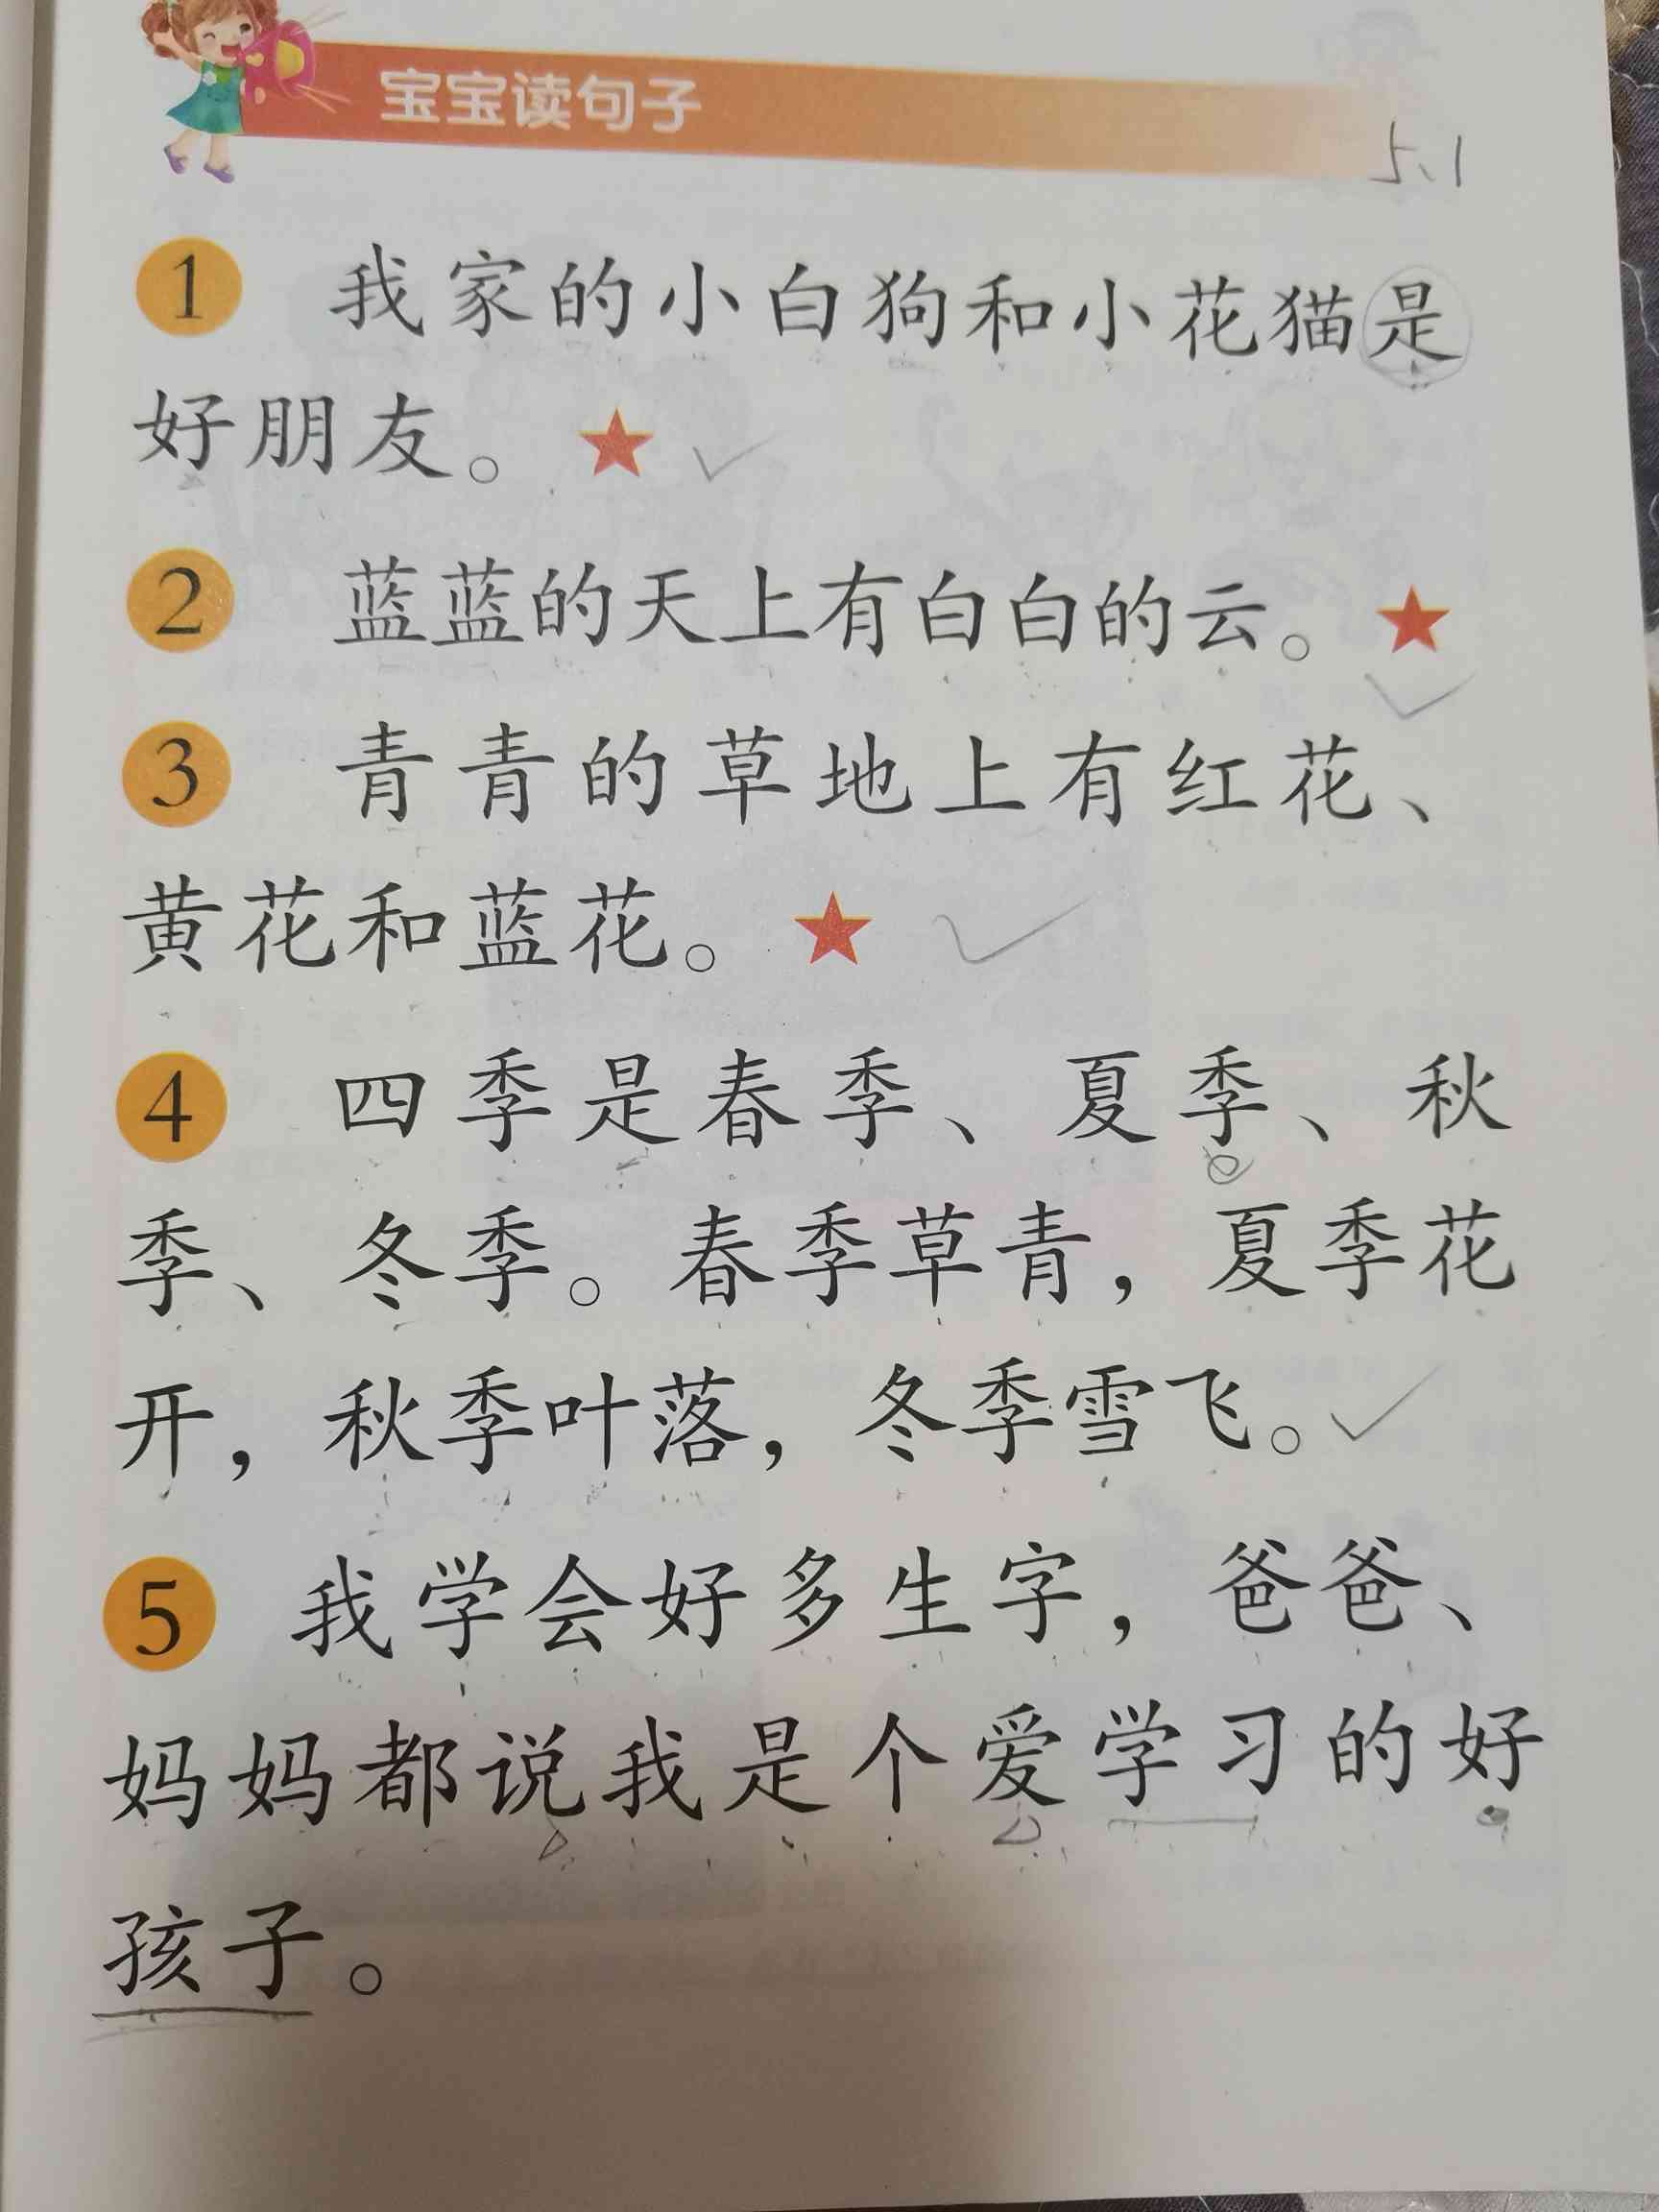 宝宝读句子
5.1
1 我家的小白狗和小花猫是
好朋友。
2 蓝蓝的天上有白白的云。
3 青青的草地上有红花、
黄花和蓝花。
4 四季是春季、夏季、秋
季、冬季。春季草青，夏季花
开，秋季叶落，冬季雪飞。
5 我学会好多生字，爸爸、
妈妈都说我是个爱学习的好
孩子。